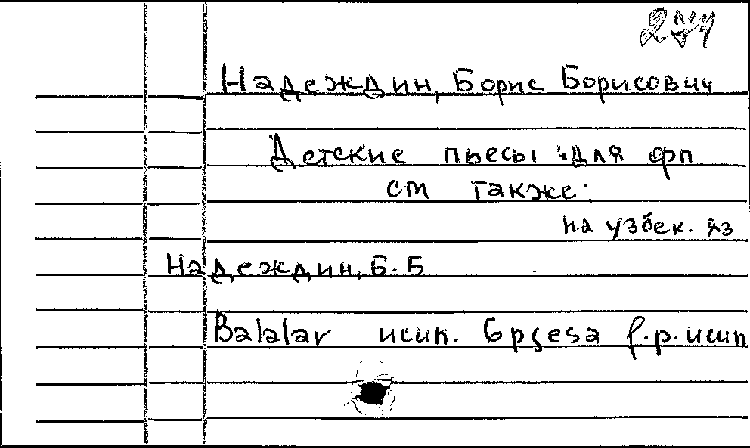 Надеждин, Борис Борисович
Детские пьесы для фп
см также:
на узбек. яз
Надеждин, Б. Б
Balalar исип. f.p. исип